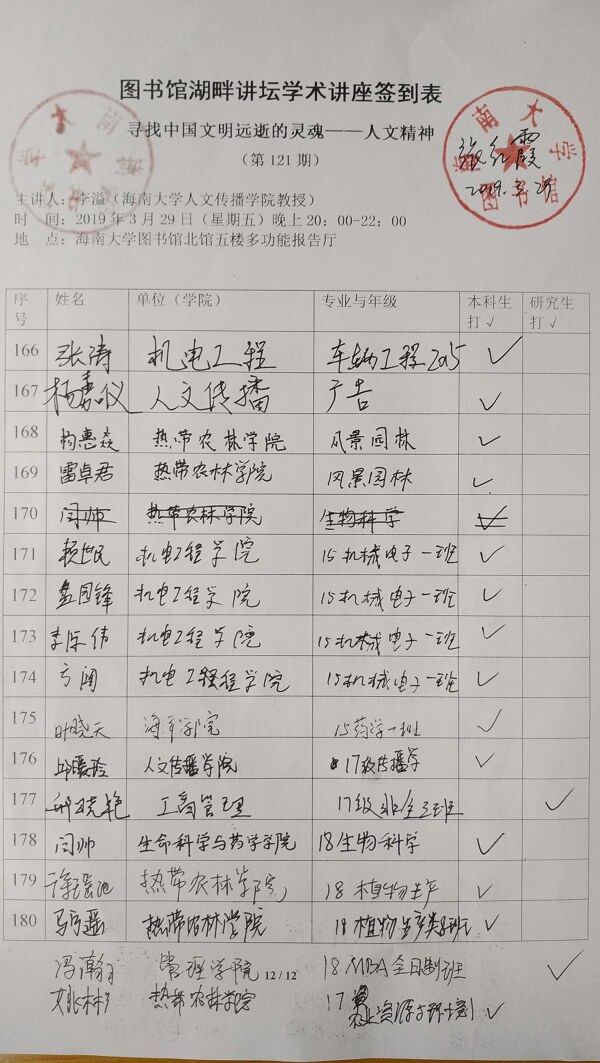 图书馆湖畔讲坛学术讲座签到表
寻找中国文明远逝的灵魂——人文精神
（第 121 期）
海南大学图书馆
张红霞
2019.3.29
主讲人：李溢（海南大学人文传播学院教授）
时　间：2019 年 3 月 29 日（星期五）晚上 20：00-22：00
地　点：海南大学图书馆北馆五楼多功能报告厅
序号 姓名 单位（学院） 专业与年级 本科生打√ 研究生打√
166 张涛 机电工程 车辆工程2015 √
167 杨嘉仪 人文传播 广告 √
168 惠焱 热带农林学院 风景园林 √
169 雷卓君 热带农林学院 风景园林 √
170 闫帅 热带农林学院 生物科学 √
171 赖世民 机电工程学院 15机械电子一班 √
172 孟国锋 机电工程学院 15机械电子一班 √
173 李乐伟 机电工程学院 15机械电子一班 √
174 机电工程程学院 15机械电子一班 √
175 叶晓天 海洋学院 15药学一班 √
176 邱 玲 人文传播学院 17级传播学 √
177 邢晓艳 工商管理 17级非全三班 √
178 闫帅 生命科学与药学学院 18生物科学 √
179 热带农林学院 18 植物生产 √
180 马 遥 热带农林学院 18植物生产类 班 √
冯瀚 管理学院 18 MBA全日制班 √
12 / 12
姚林 热带农林学院 17农业资源与环境 √